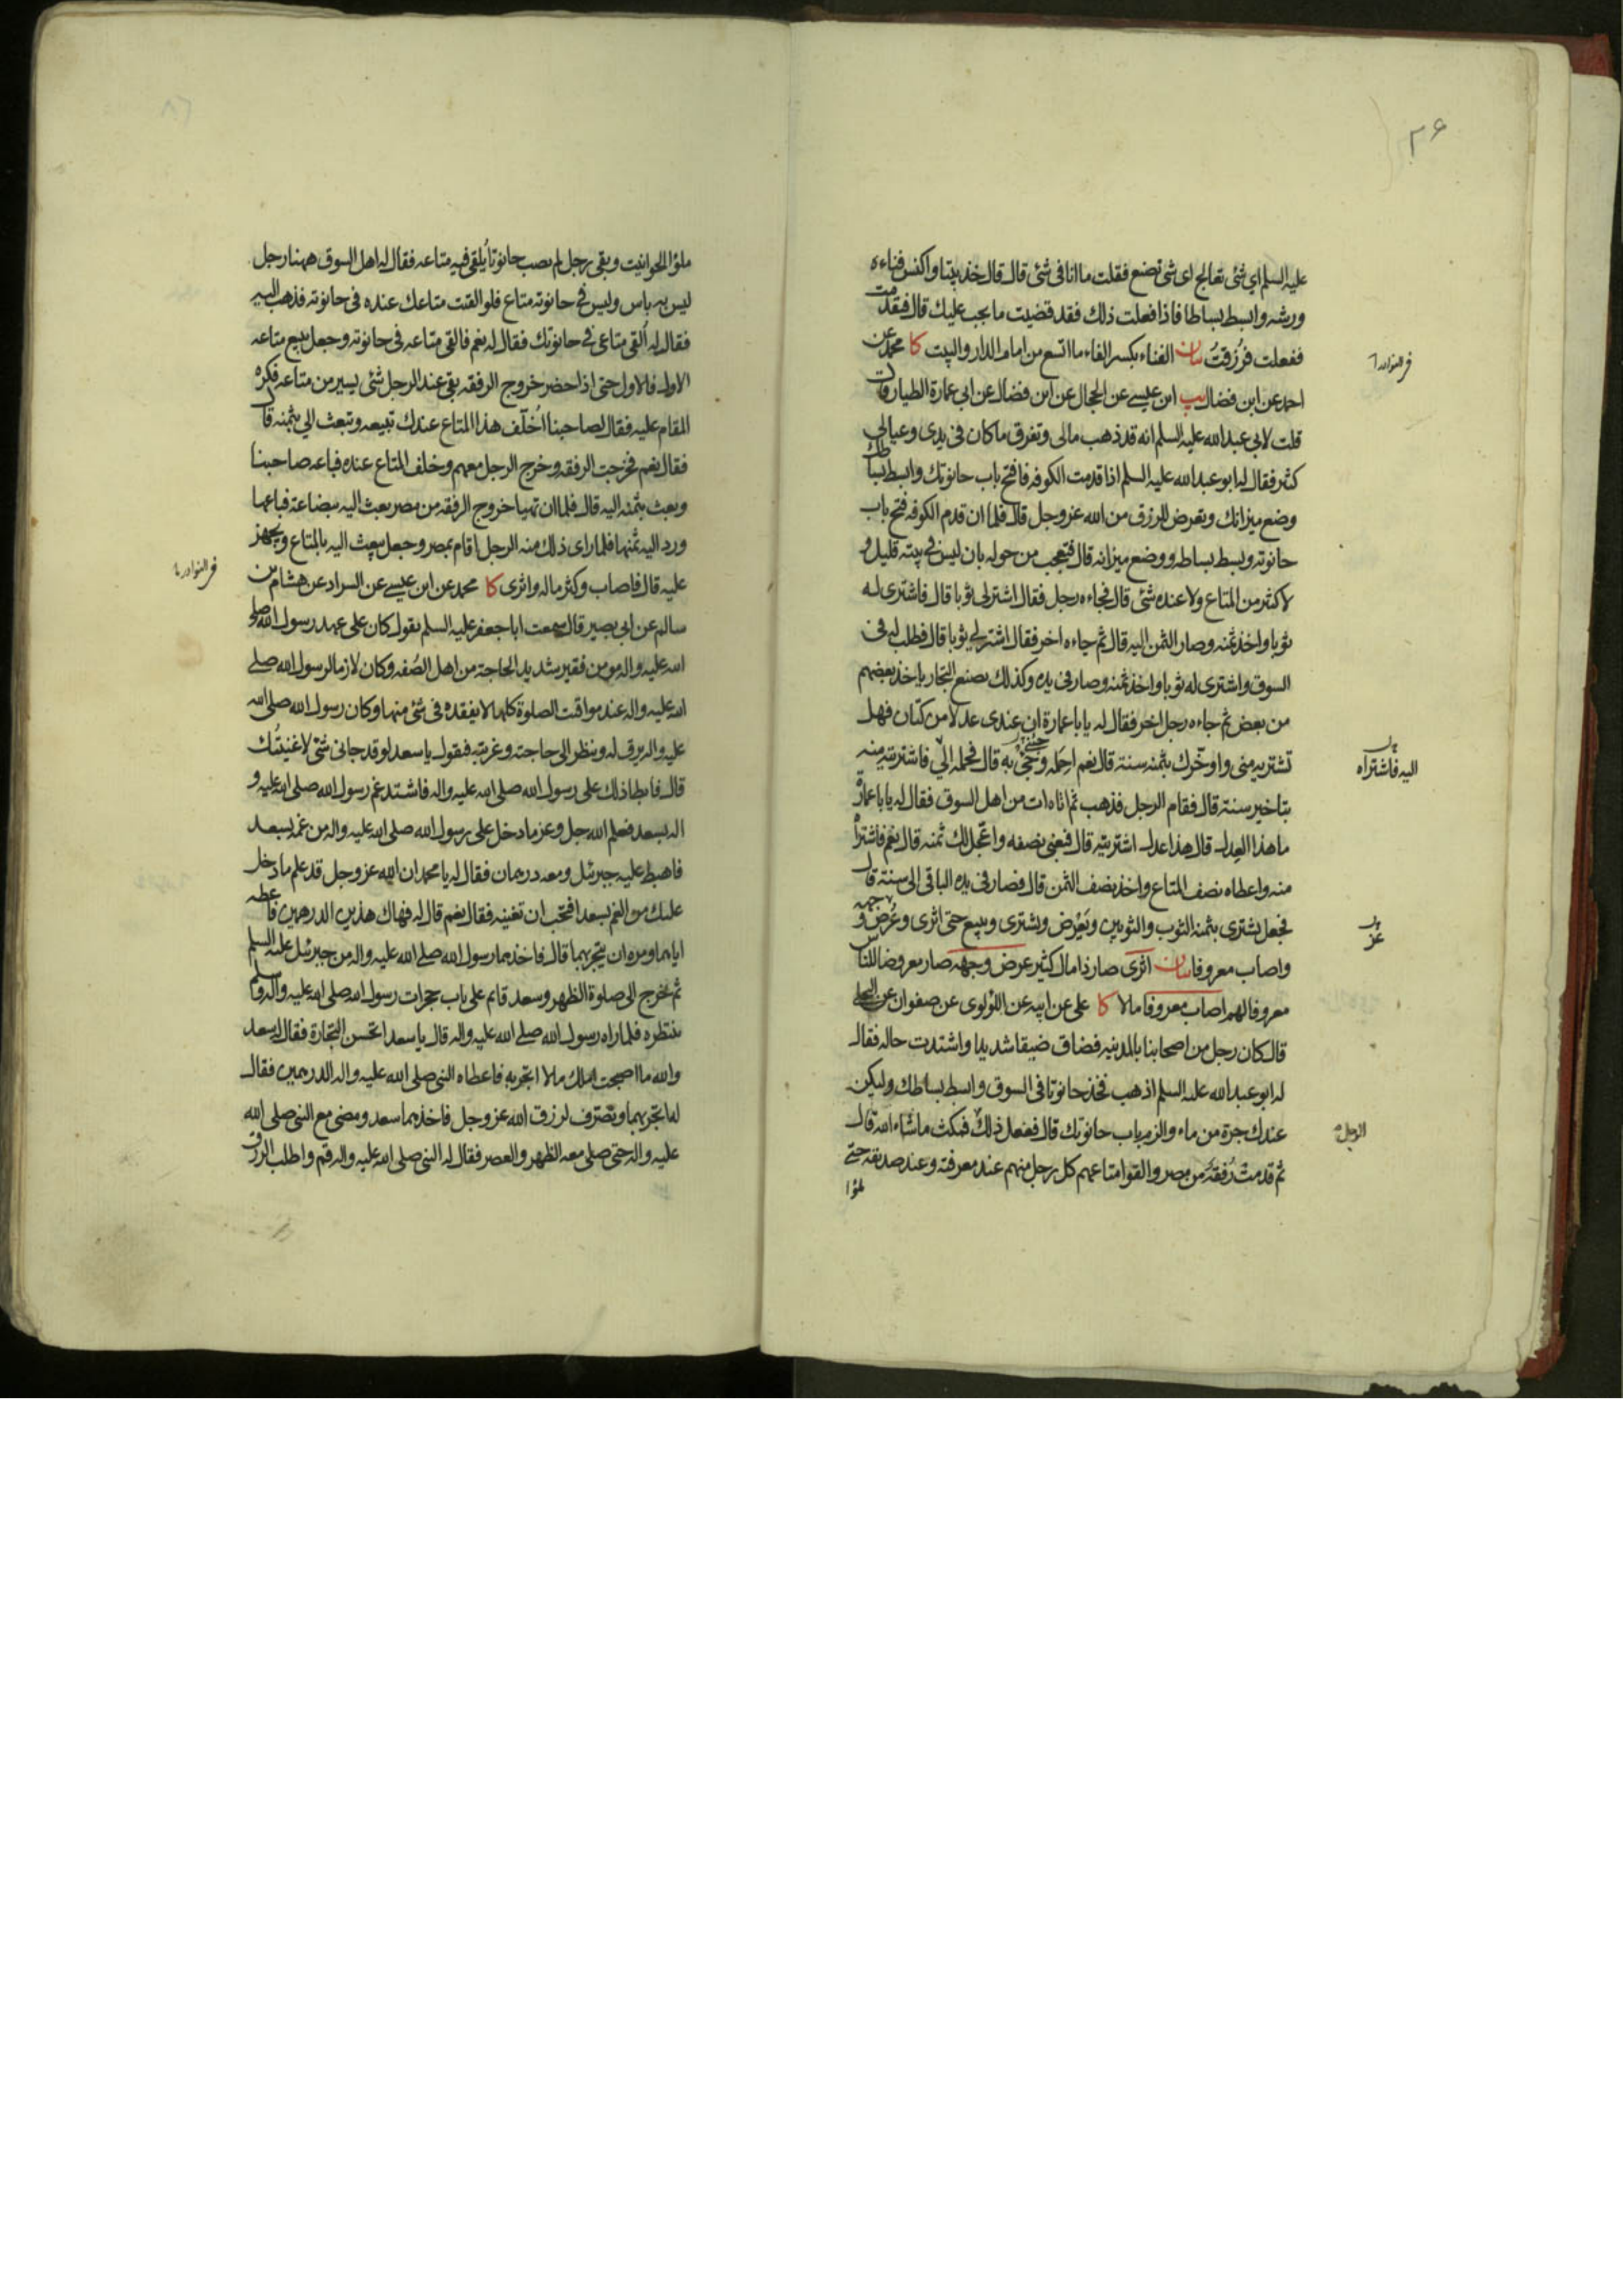 ٢٦
عليه السلم اي شئ تعالج اى شئ تصنع فقلت ما انا فى شئ قال قال خذ بيتا واكنس فناءه
ورشه وابسط بساطا فاذا فعلت ذلك فقد قضيت ما يجب عليك قال فقدمت
ففعلت فرُزقتُ بيان الفناء بكسر الفاء ما اتسع من امام الدار والبيت كا محمد عن
احمد عن ابن فضال يب ابن عيسى عن الحجال عن ابن فضال عن ابى عمارة الطيار قال
قلت لابى عبد الله عليه السلم انه قد ذهب مالى وتفرق ما كان فى يدى وعيالى
كثير فقال له ابو عبد الله عليه السلم اذا قدمت الكوفه فافتح باب حانوتك وابسط بساطك
وضع ميزانك وتعرض للرزق من الله عز وجل قال فلما ان قدم الكوفه فتح باب
حانوته وبسط بساطه ووضع ميزانه قال فتعجب من حوله بان ليس فى بيته قليل و
لا كثير من المتاع ولا عنده شئ قال فجاءه رجل فقال اشتر لى ثوبا قال فاشترى له
ثوبا واخذ ثمنه وصار الثمن اليه قال ثم جاءه اخر فقال اشتر لي ثوبا قال فطلب له فى
السوق واشترى له ثوبا واخذ ثمنه وصار فى يده وكذلك يصنع التجار ياخذ بعضهم
من بعض ثم جاءه رجل اخر فقال له يابا عمارة ان عندى عدلا من كتان فهل
تشتريه منى واوخّرك بثمنه سنة قال نعم احمله وجئ به قال فحمله اليّ فاشتريته منه
بتاخير سنة قال فقام الرجل فذهب ثم اتاه ات من اهل السوق فقال له يابا عمارة
ما هذا العدل قال هذا عدل اشتريته قال فبعنى نصفه واعجّل لك ثمنه قال نعم فاشتراه
منه واعطاه نصف المتاع واخذ نصف الثمن قال فصار فى يده الباقى الى سنة قال
فجعل يشترى بثمنه الثوب والثوبين ويَعْرِض ويشترى ويبيع حتى اثرى وعُرِض وجهه
واصاب معروفا بيان اثرى صار ذا مال كثير عرض وجهه صار معروضا للناس
معروفا لهم اصاب معروفا مالا كا على عن ابيه عن اللؤلوى عن صفوان عن البجلى
قال كان رجل من اصحابنا بالمدينه فضاق ضيقا شديدا واشتدت حاله فقال
له ابو عبد الله عليه السلم اذهب فخذ حانوتا فى السوق وابسط بساطك وليكن
عندك جرة من ماء والزم باب حانوتك قال ففعل ذلك فمكث ما شاء الله قال
ثم قدمت رُفقة من مصر والقوا متاعهم كل رجل منهم عند معرفته وعند صديقه حتى
ملؤا
فى النوادر
اليه فاشتراه
عز
الرجل
ملؤا الحوانيت وبقى رجل لم يصب حانوتا يُلقى فيه متاعه فقال له اهل السوق ههنا رجل
ليس به باس وليس فى حانوته متاع فلو القيت متاعك عنده فى حانوته فذهب اليه
فقال له اُلقى متاعى فى حانوتك فقال له نعم فالقى متاعه فى حانوته وجعل يبيع متاعه
الاول فالاول حتى اذا حضر خروج الرفقه بقى عند الرجل شئ يسير من متاعه فكره
المقام عليه فقال لصاحبنا اُخلّف هذا المتاع عندك تبيعه وتبعث الي بثمنه قال
فقال نعم فخرجت الرفقه وخرج الرجل معهم وخلف المتاع عنده فباعه صاحبنا
وبعث بثمنه اليه قال فلما ان تهيا خروج الرفقه من مصر بعث اليه ببضاعة فباعها
ورد اليه ثمنها فلما راى ذلك منه الرجل اقام بمصر وجعل يبعث اليه بالمتاع ويجهز
عليه قال فاصاب وكثر ماله واثرى كا محمد عن ابن عيسى عن السراد عن هشام بن
سالم عن ابى بصير قال سمعت ابا جعفر عليه السلم يقول كان على عهد رسول الله صلى
الله عليه واله مومن فقير شديد الحاجة من اهل الصُفه وكان لازما لرسول الله صلى
الله عليه واله عند مواقت الصلوة كلها لا يفقده فى شئ منها وكان رسول الله صلى الله
عليه واله يرق له وينظر الى حاجته وغربته فيقول يا سعد لو قد جانى شئ لاغنيتُك
قال فابطا ذلك على رسول الله صلى الله عليه واله فاشتد غم رسول الله صلى الله عليه و
اله بسعد فعلم الله جل وعز ما دخل على رسول الله صلى الله عليه واله من غمه بسعد
فاهبط عليه جبرئيل ومعه درهمان فقال له يا محمد ان الله عز وجل قد علم ما دخل
عليك من الغم بسعد افتحب ان تغنيه فقال نعم قال له فهاك هذين الدرهمين فاعطه
اياهما ومره ان يتجر بهما قال فاخذهما رسول الله صلى الله عليه واله من جبرئيل عليه السلم
ثم خرج الى صلوة الظهر وسعد قائم على باب حجرات رسول الله صلى الله عليه واله وسلم
ينتظره فلما راه رسول الله صلى الله عليه واله قال يا سعد اتحسن التجارة فقال له سعد
والله ما اصبحت املك مالا اتجر به فاعطاه النبى صلى الله عليه واله الدرهمين فقال
له اتجر بهما وتصرف لرزق الله عز وجل فاخذهما سعد ومضى مع النبى صلى الله
عليه واله حتى صلى معه الظهر والعصر فقال له النبى صلى الله عليه واله قم واطلب الرزق
فى النوادر